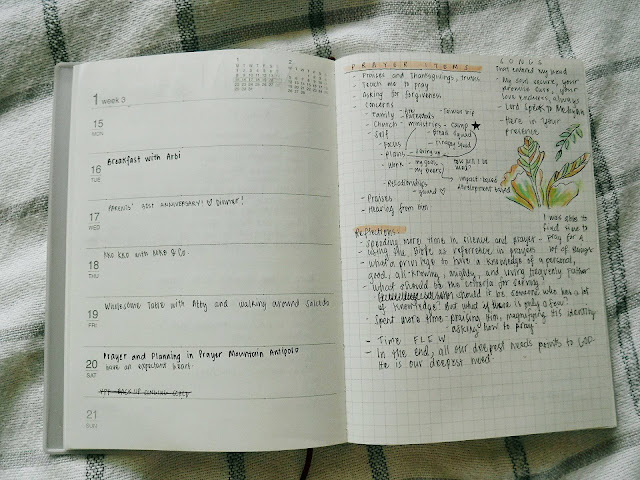 1 week 3
15
MON
16
TUE
Breakfast with Arbi
17
WED
PARENTS' 31ST ANNIVERSARY! ♡ Dinner!
18
THU
with & Co.
19
FRI
Wholesome Table with Atty and walking around Salcedo
20
SAT
Prayer and Planning in Prayer Mountain Antipolo
have an expectant heart.
21
SUN
PRAYER ITEMS
- Praises and Thanksgivings, truths
- Teach me to pray
- Asking for forgiveness
- Concerns
- Family - Taiwan trip
- Church - ministries - camp ★
- Self - Bread Squad
- Focus - Squad
- Plans - Giving up
- Work - my goals
my
- Relationships - impact-based
- guard ♡ development based
- Praises
- Hearing from Him
SONGS
that entered my head
- My soul secure, your
promise sure, your
love endures always
- Lord Speak to Me
- Here in Your
presence
I was able to
find time to
pray for a
lot of people
Reflections:
- Spending more time in silence and prayer
- using the Bible as reference in prayers
- What a privilege to have a knowledge of a personal,
good, all-knowing, mighty, and living heavenly father
- What should be the criteria for serving?
should it be someone who has a lot
of knowledge? But what if there is only a few?
- Spent more time praising Him, magnifying His identity
asking how to pray
- Time FLEW
- In the end, all our deepest needs points to GOD.
He is our deepest need